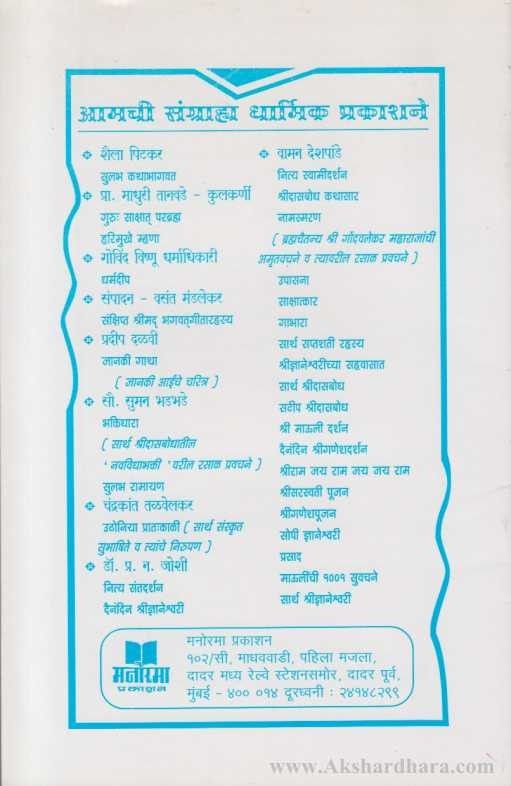 आमची संग्राह्य धार्मिक प्रकाशने
❖ शैला पिटकर
सुलभ कथाभागवत
❖ प्रा. माधुरी तानवडे - कुलकर्णी
गुरुः साक्षात् परब्रह्म
हरिमुखे म्हणा
❖ गोविंद विष्णू धर्माधिकारी
धर्मदीप
❖ संपादन - वसंत मंडलेकर
संक्षिप्त श्रीमद् भगवत्गीतारहस्य
❖ प्रदीप दळवी
जानकी गाथा
( जानकी आईचे चरित्र )
❖ सौ. सुमन भडभडे
भक्तिधारा
( सार्थ श्रीदासबोधातील
'नवविधाभक्ती 'वरील रसाळ प्रवचने )
सुलभ रामायण
❖ चंद्रकांत तळवेलकर
उठोनिया प्रातःकाळी ( सार्थ संस्कृत
सुभाषिते व त्यांचे निरुपण )
❖ डॉ. प्र. न. जोशी
नित्य संतदर्शन
दैनंदिन श्रीज्ञानेश्वरी
❖ वामन देशपांडे
नित्य स्वामीदर्शन
श्रीदासबोध कथासार
नामस्मरण
( ब्रह्मचैतन्य श्री गोंदवलेकर महाराजांची
अमृतवचने व त्यावरील रसाळ प्रवचने )
उपासना
साक्षात्कार
गाभारा
सार्थ सप्तशती रहस्य
श्रीज्ञानेश्वरीच्या सहवासात
सार्थ श्रीदासबोध
सटीप श्रीदासबोध
श्री माऊली दर्शन
दैनंदिन श्रीगणेशदर्शन
श्रीराम जय राम जय जय राम
श्रीसरस्वती पूजन
श्रीगणेशपूजन
सोपी ज्ञानेश्वरी
प्रसाद
माऊलींची १००१ सुवचने
सार्थ श्रीज्ञानेश्वरी
मनोरमा
प्रकाशन
मनोरमा प्रकाशन
१०२/सी, माधववाडी, पहिला मजला,
दादर मध्य रेल्वे स्टेशनसमोर, दादर पूर्व,
मुंबई - ४०० ०१४ दूरध्वनी : २४१४८२९९
www.Akshardhara.com